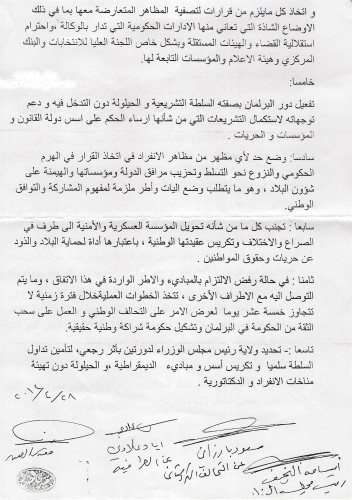 و اتخاذ كل مايلزم من قرارات لتصفية المظاهر المتعارضة معها بما في ذلك
الاوضاع الشاذة التي تعاني منها الادارات الحكومية التي تدار بالوكالة ،واحترام
استقلالية القضاء والهيئات المستقلة وبشكل خاص اللجنة العليا للانتخابات والبنك
المركزي وهيئة الاعلام والمؤسسات التابعة لها.
خامسا:
تفعيل دور البرلمان بصفته السلطة التشريعية و الحيلولة دون التدخل فيه و دعم
توجهاته لاستكمال التشريعات التي من شأنها ارساء الحكم على اسس دولة القانون و
المؤسسات و الحريات .
سادسا: وضع حد لأي مظهر من مظاهر الانفراد في اتخاذ القرار في الهرم
الحكومي والنزوع نحو التسلط وتحزيب مرافق الدولة ومؤسساتها والهيمنة على
شؤون البلاد ، وهو ما يتطلب وضع اليات وأطر ملزمة لمفهوم المشاركة والتوافق
الوطني.
سابعا : تجنب كل ما من شأنه تحويل المؤسسة العسكرية والأمنية الى طرف في
الصراع والاختلاف وتكريس عقيدتها الوطنية ، باعتبارها أداة لحماية البلاد والذود
عن حريات وحقوق المواطنين .
ثامنا : في حالة رفض الالتزام بالمباديء والاطر الواردة في هذا الاتفاق ، وما يتم
التوصل اليه مع الاطراف الأخرى ، تتخذ الخطوات العملية خلال فترة زمنية لا
تتجاوز خمسة عشر يوما لعرض الامر على التحالف الوطني و العمل على سحب
الثقة من الحكومة في البرلمان وتشكيل حكومة شراكة وطنية حقيقية.
تاسعا :- تحديد ولاية رئيس مجلس الوزراء لدورتين بأثر رجعي، لتأمين تداول
السلطة سلميا و تكريس أسس و مباديء الديمقراطية ،و الحيلولة دون تهيئة
مناخات الانفراد و الدكتاتورية .
مسعود بارزاني
عن التحالف الكردستاني
اياد علاوي
عن العراقية
اسامة النجيفي